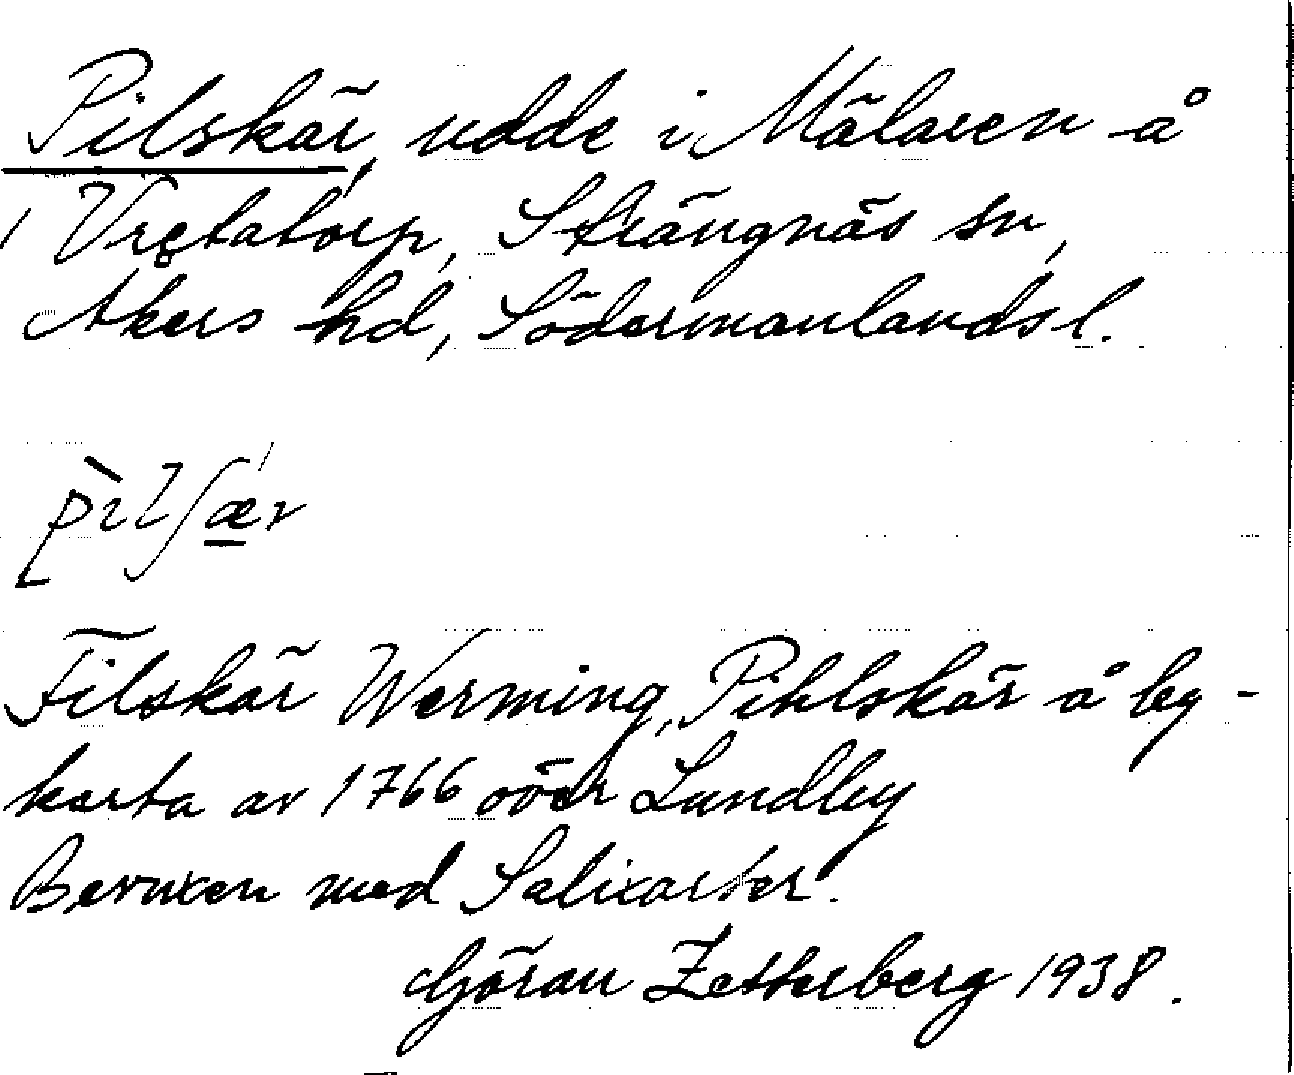 Pilskär, udde i Mälaren å
Vretatorp, Strängnäs sn,
Åkers hd, Södermanlands l.
pìlʃær
Filskär Werming, Pihlskär å by-
karta av 1766 över Lundby
Bevuxen med Salixarter.
Göran Zetterberg 1938.